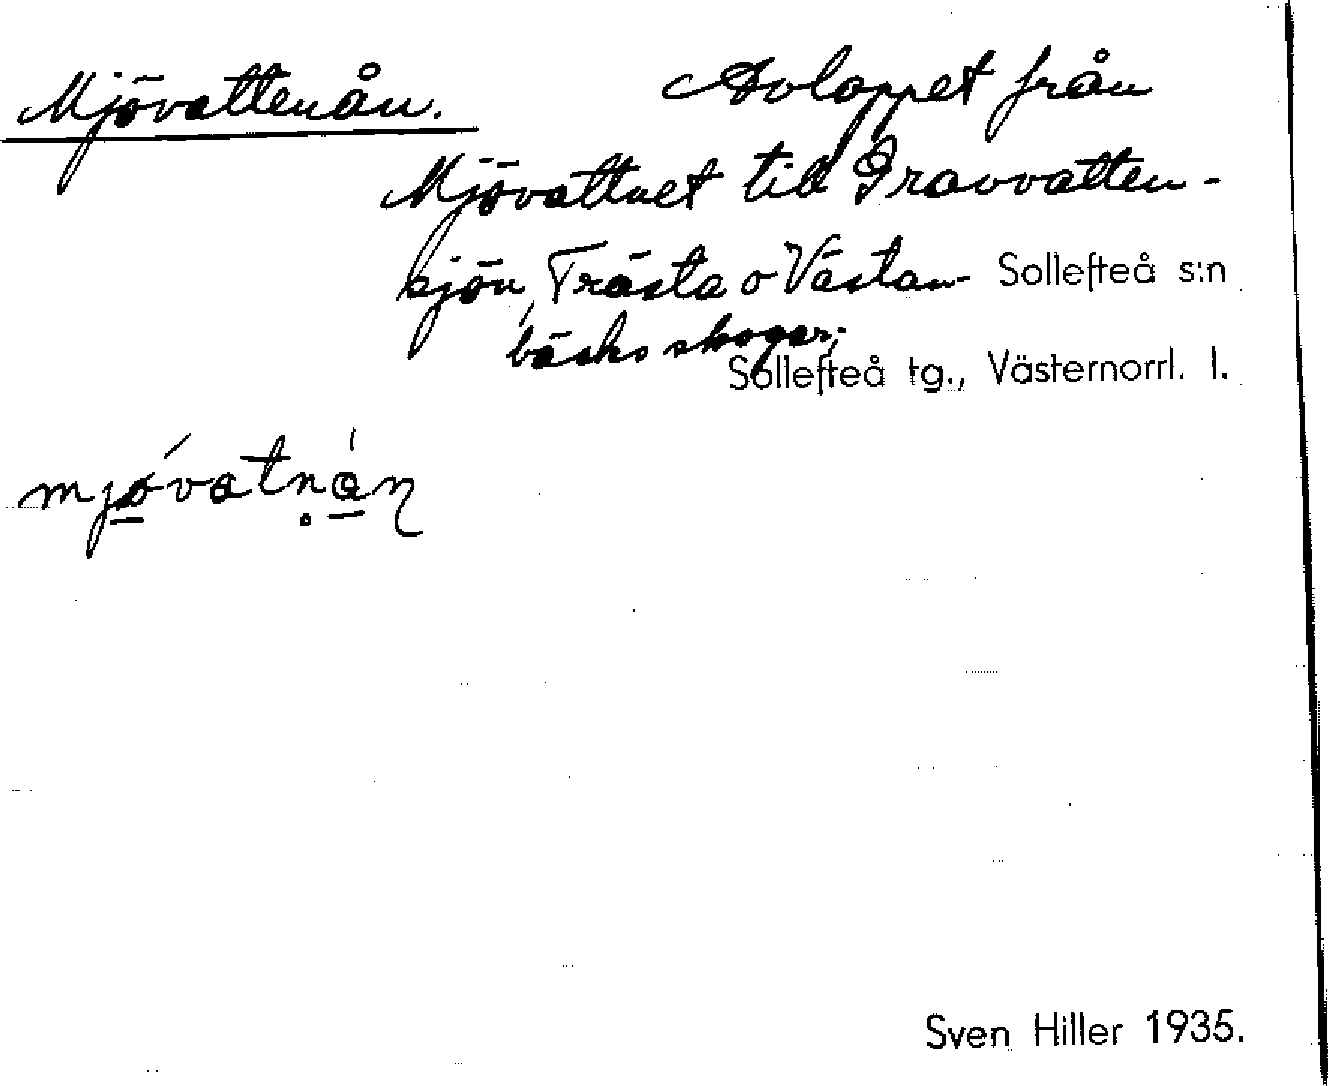 Mjövattenån. Avloppet från
Mjövattnet till Gravvatten-
sjön, Trästa o Västan-
bäcks skogar; Sollefteå s:n
Sollefteå tg., Västernorrl. l.
Sven Hiller 1935.